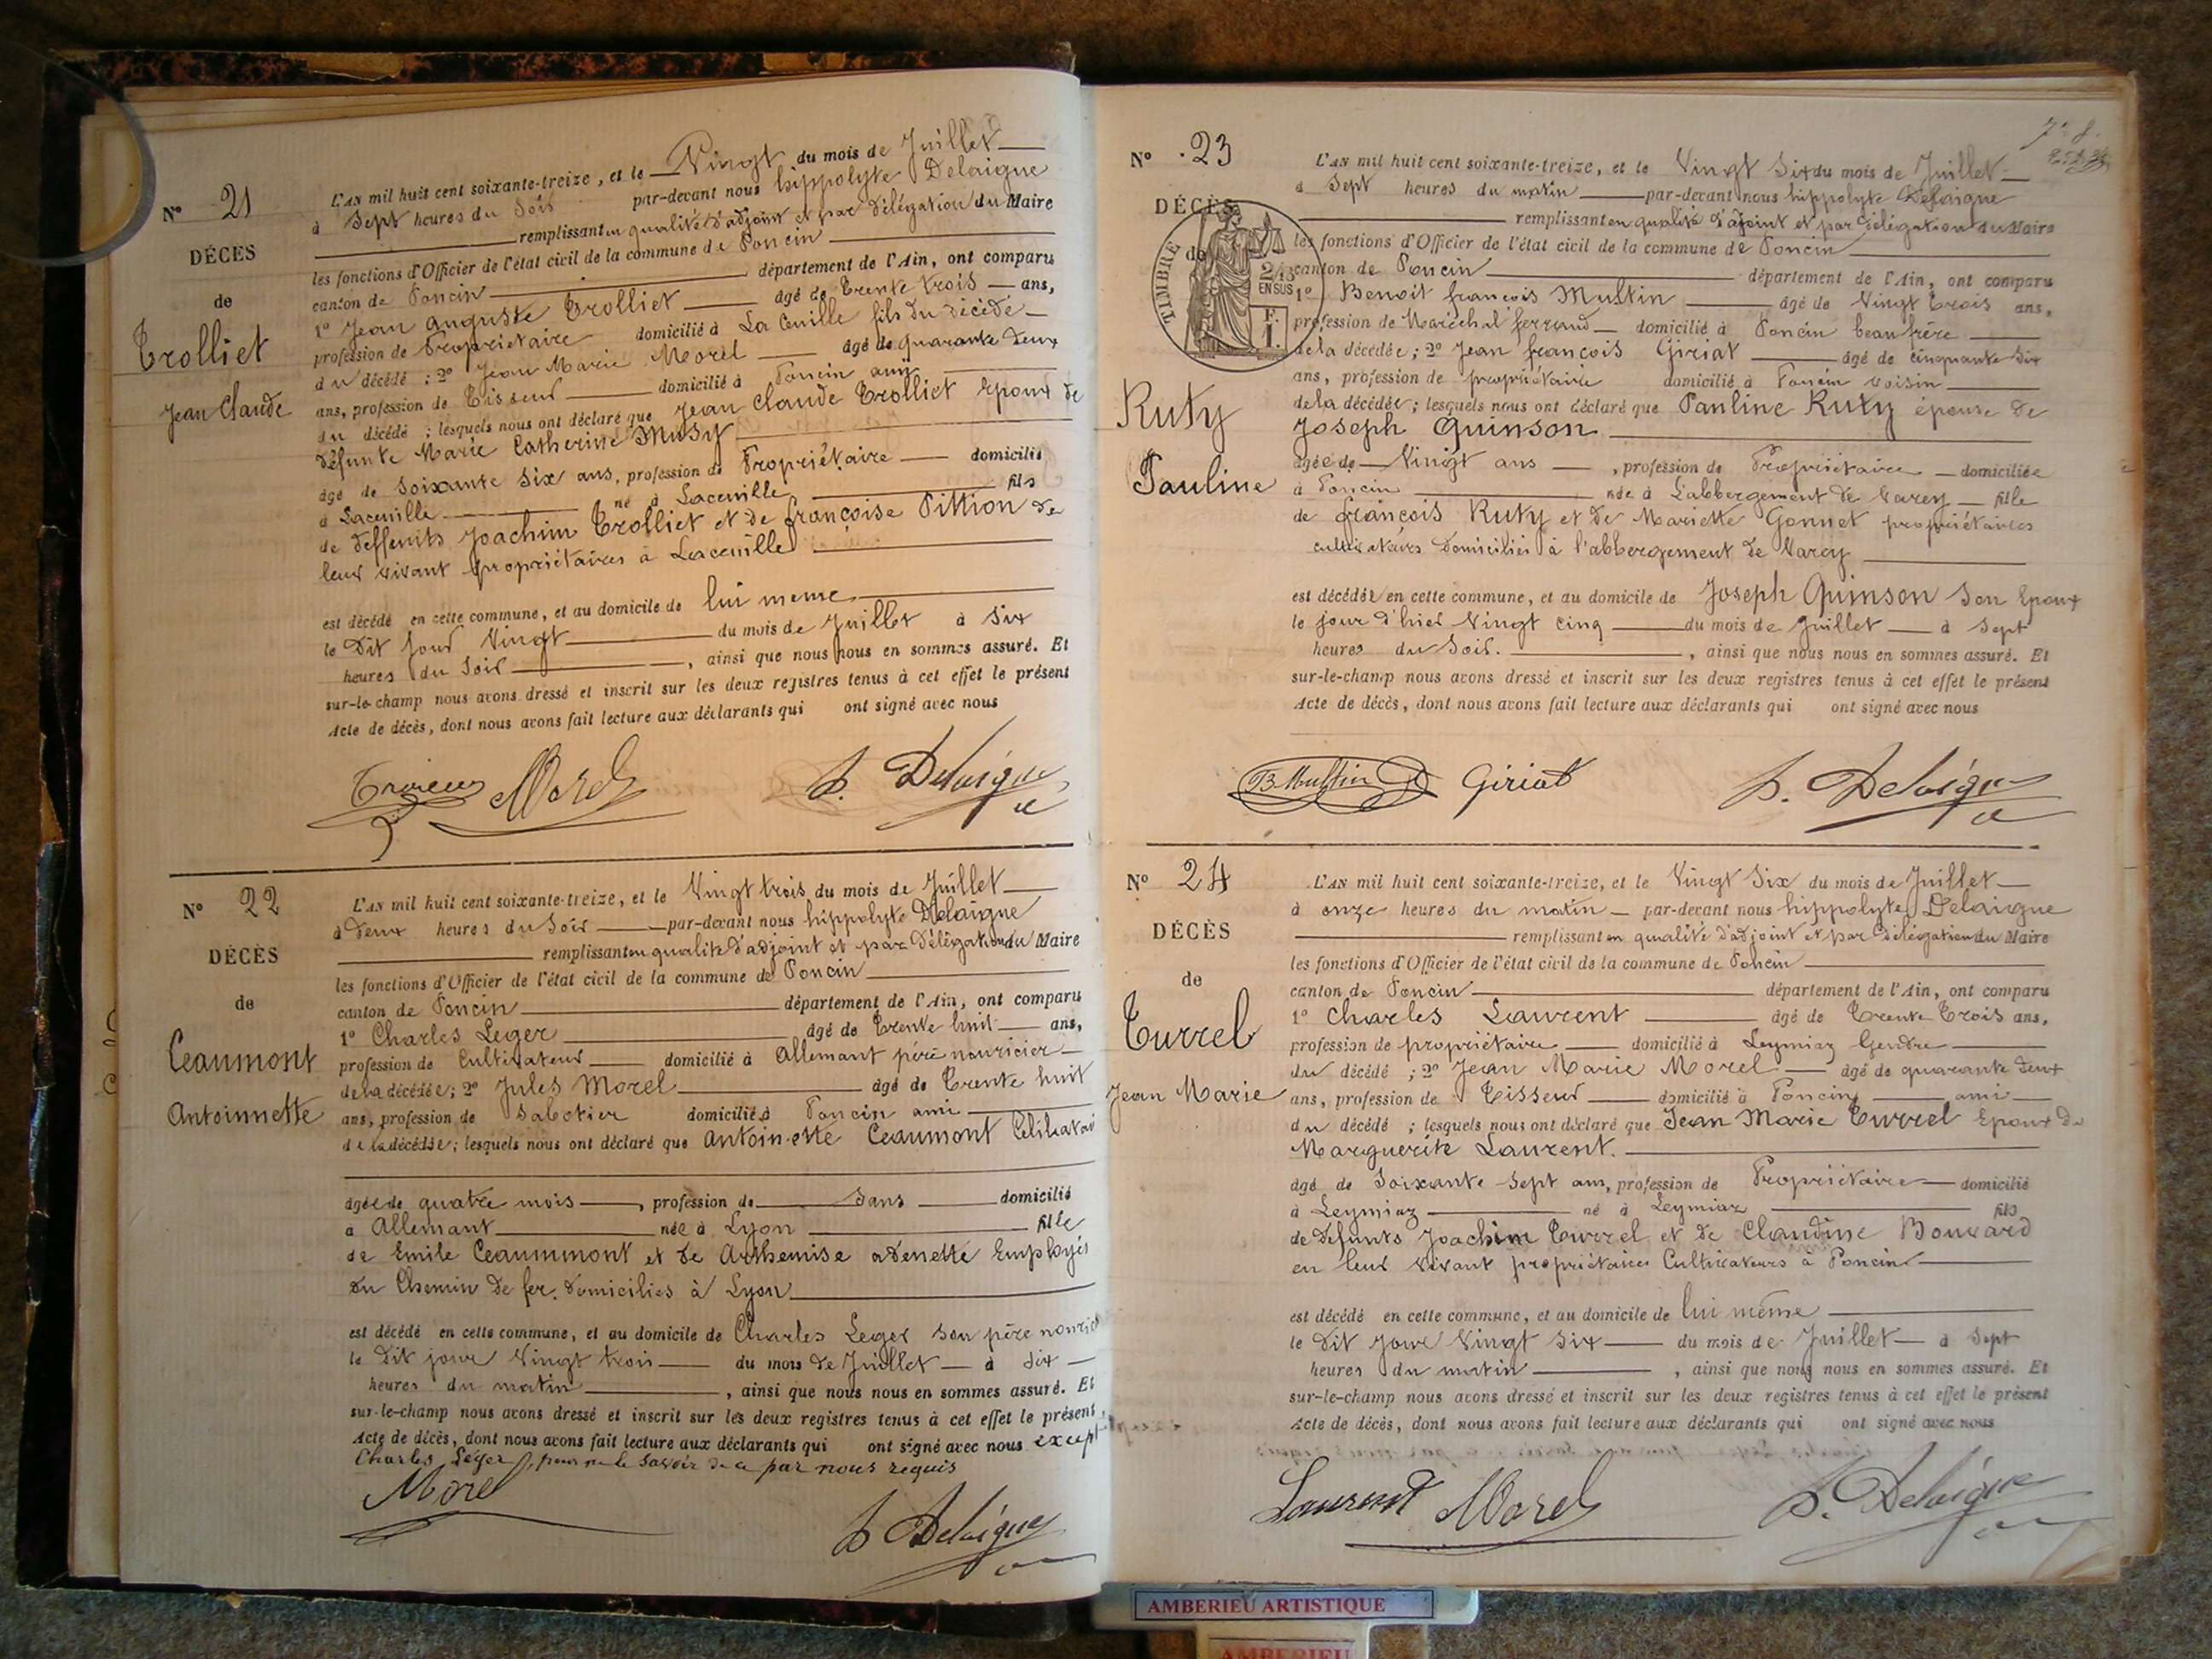 N° 21
DÉCÈS
de
Trolliet
Jean Claude
L'AN mil huit cent soixante-treize, et le Vingt du mois de Juillet
à Sept heures du Soir par-devant nous hippolyte Delaigue
remplissant en qualité d'adjoint et par délégation du Maire
les fonctions d'Officier de l'état civil de la commune de Poncin
canton de Poncin département de l'Ain, ont comparu
1° Jean auguste Trolliet âgé de Trente trois ans,
profession de Propriétaire domicilié à La Cueille fils du décédé
du décédé ; 2° Jean Marie Morel âgé de quarante deux
ans, profession de Tisseur domicilié à Poncin ami
du décédé ; lesquels nous ont déclaré que Jean Claude Trolliet Epoux de
défunte Marie Catherine Musy
âgé de Soixante Six ans, profession de Propriétaire domicilié
à Lacueille né à Lacueille fils
de deffunts Joachim Trolliet et de françoise Pittion de
leur vivant propriétaires à Lacueille
est décédé en cette commune, et au domicile de lui meme
le Dit jour Vingt du mois de Juillet à Six
heures du Soir , ainsi que nous nous en sommes assuré. Et
sur-le-champ nous avons dressé et inscrit sur les deux registres tenus à cet effet le présent
Acte de décès, dont nous avons fait lecture aux déclarants qui ont signé avec nous
Morel h. Delaigue
N° 22
DÉCÈS
de
Ceaumont
Antoinnette
L'AN mil huit cent soixante-treize, et le Vingt trois du mois de Juillet
à Deux heures du Soir par-devant nous hippolyte Delaigue
remplissant en qualité d'adjoint et par délégation du Maire
les fonctions d'Officier de l'état civil de la commune de Poncin
canton de Poncin département de l'Ain, ont comparu
1° Charles Leger âgé de Trente huit ans,
profession de Cultivateur domicilié à Allemant père nouricier
de la décédée; 2° Jules Morel âgé de Trente huit
ans, profession de Sabotier domicilié à Poncin ami
de la décédée; lesquels nous ont déclaré que Antoinette Ceaumont
âgée de quatre mois , profession de Sans domicilié
à Allemant née à Lyon fille
de Emile Ceaummont et de Arthemise adenette Employés
du Chemin de fer. domiciliés à Lyon
est décédé en cette commune, et au domicile de Charles Leger Son père
le Dit jour Vingt trois du mois de Juillet à Six
heures du matin , ainsi que nous nous en sommes assuré. Et
sur-le-champ nous avons dressé et inscrit sur les deux registres tenus à cet effet le présent
Acte de décès, dont nous avons fait lecture aux déclarants qui ont signé avec nous except
Charles Léger, pour ne le Savoir de ce par nous requis
Morel
h Delaigue
N° 23
DÉCÈS
de
TIMBRE
2/10 EN SUS
F. 1.
Ruty
Pauline
L'AN mil huit cent soixante-treize, et le Vingt Six du mois de Juillet
à Sept heures du matin par-devant nous hippolyte Delaigue
remplissant en qualité d'adjoint et par délégation du Maire
les fonctions d'Officier de l'état civil de la commune de Poncin
canton de Poncin département de l'Ain, ont comparu
1° Benoit françois Multin âgé de Vingt trois ans,
profession de Maréchal ferrand domicilié à Poncin beau frère
de la décédée; 2° Jean françois Giriat âgé de cinquante Six
ans, profession de propriétaire domicilié à Poncin voisin
de la décédée; lesquels nous ont déclaré que Pauline Ruty épouse de
Joseph Quinson
âgée de Vingt ans , profession de Propriétaire domiciliée
à Poncin née à L'abbergement de Varey fille
de françois Ruty et de Mariette Gonnet propriétaires
cultivateurs domiciliés à l'abbergement de Varey
est décédée en cette commune, et au domicile de Joseph Quinson Son Epoux
le jour d'hier Vingt cinq du mois de Juillet à Sept
heures du Soir. , ainsi que nous nous en sommes assuré. Et
sur-le-champ nous avons dressé et inscrit sur les deux registres tenus à cet effet le présent
Acte de décès, dont nous avons fait lecture aux déclarants qui ont signé avec nous
B Multin Giriat h. Delaigue
N° 24
DÉCÈS
de
Turrel
Jean Marie
L'AN mil huit cent soixante-treize, et le Vingt Six du mois de Juillet
à onze heures du matin par-devant nous hippolyte Delaigue
remplissant en qualité d'adjoint et par délégation du Maire
les fonctions d'Officier de l'état civil de la commune de Poncin
canton de Poncin département de l'Ain, ont comparu
1° Charles Laurent âgé de Trente Trois ans,
profession de propriétaire domicilié à Leymiaz Gendre
du décédé ; 2° Jean Marie Morel âgé de quarante deux
ans, profession de Tisseur domicilié à Poncin ami
du décédé ; lesquels nous ont déclaré que Jean Marie Turrel Epoux De
Marguerite Laurent.
âgé de Soixante Sept ans, profession de Propriétaire domicilié
à Leymiaz né à Leymiaz fils
de défunts Joachim Turrel et de Claudine Bouvard
en leur vivant propriétaires Cultivateurs à Poncin
est décédé en cette commune, et au domicile de lui même
le Dit jour Vingt Six du mois de Juillet à Sept
heures du matin , ainsi que nous nous en sommes assuré. Et
sur-le-champ nous avons dressé et inscrit sur les deux registres tenus à cet effet le présent
Acte de décès, dont nous avons fait lecture aux déclarants qui ont signé avec nous
Laurent Morel h. Delaigue
AMBERIEU ARTISTIQUE
AMBERIEU